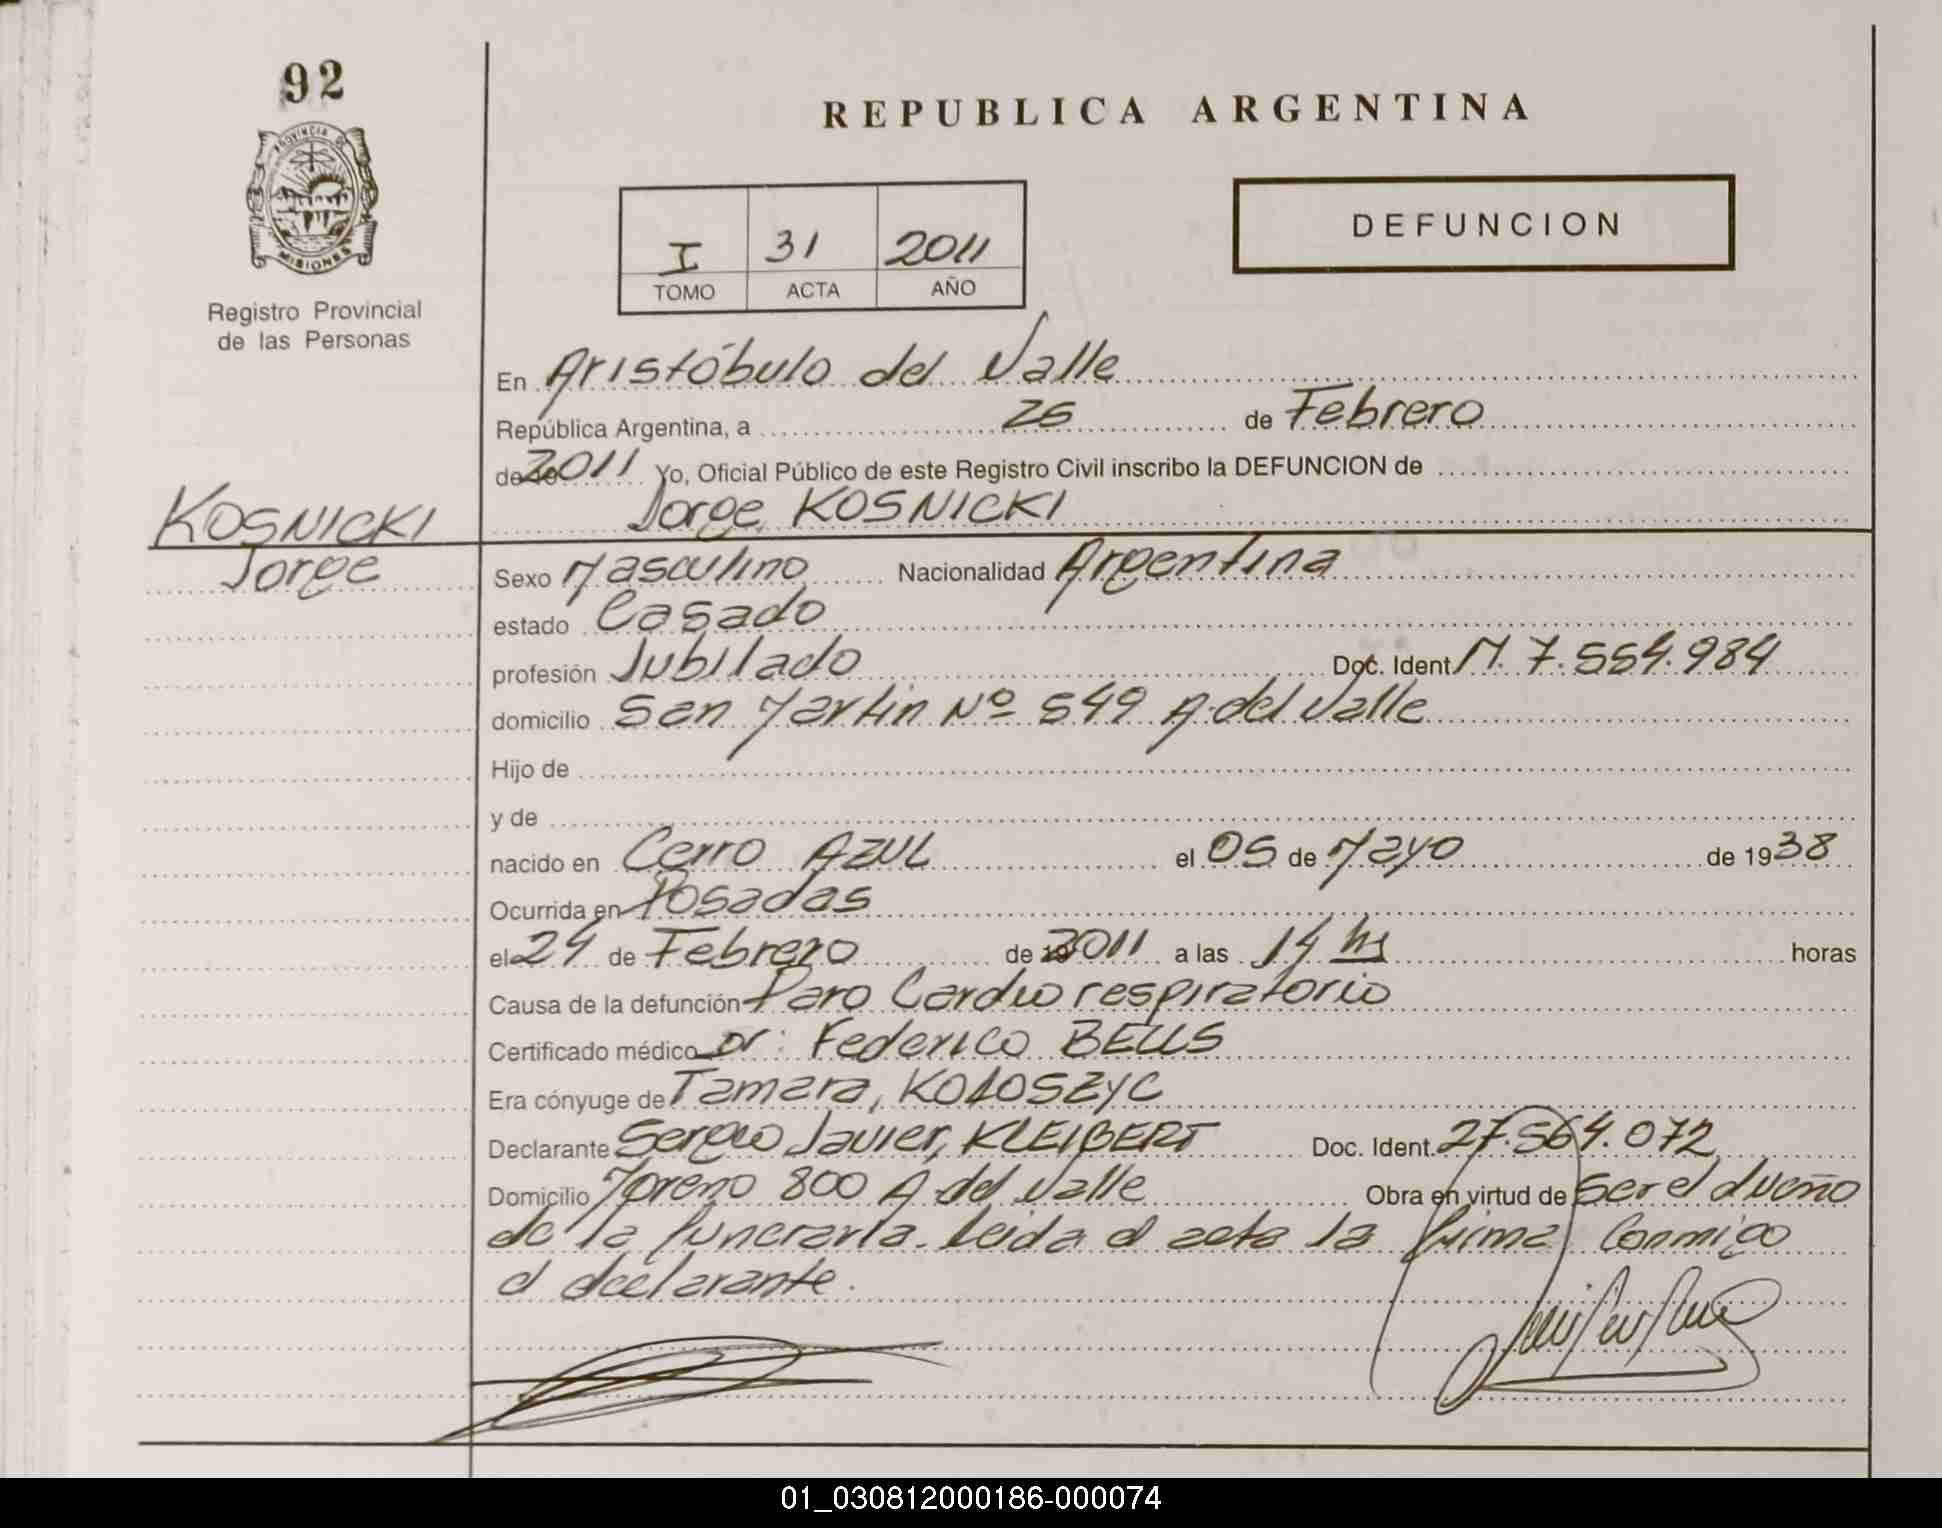 92
PROVINCIA DE
MISIONES
Registro Provincial
de las Personas
REPUBLICA ARGENTINA
I 31 2011
TOMO ACTA AÑO
DEFUNCION
En Aristóbulo del Valle
República Argentina, a 25 de Febrero
de 2011 Yo, Oficial Público de este Registro Civil inscribo la DEFUNCION de
Jorge KOSNICKI
KOSNICKI
Jorge
Sexo Masculino Nacionalidad Argentina
estado Casado
profesión Jubilado Doc. Ident. M. 7.554.984
domicilio San Martin Nº 549 A. del Valle
Hijo de
y de
nacido en Cerro AZUL el 05 de Mayo de 1938
Ocurrida en Posadas
el 24 de Febrero de 2011 a las 14 hs horas
Causa de la defunción Paro Cardio respiratorio
Certificado médico Dr: Federico BELLS
Era cónyuge de Tamara, KOLOSZYC
Declarante Sergio Javier, KLEIBERT Doc. Ident. 27.564.072
Domicilio Moreno 800 A. del Valle Obra en virtud de Ser el dueño
de la funeraria. Leida el acta la firma Conmigo
el declarante.
01_030812000186-000074